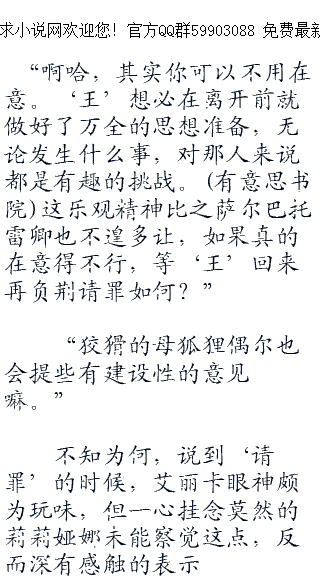 求小说网欢迎您! 官方QQ群59903088 免费最新
“啊哈，其实你可以不用在
意。‘王’想必在离开前就
做好了万全的思想准备，无
论发生什么事，对那人来说
都是有趣的挑战。(有意思书
院)这乐观精神比之萨尔巴托
雷卿也不遑多让，如果真的
在意得不行，等‘王’回来
再负荆请罪如何？”
“狡猾的母狐狸偶尔也
会提些有建设性的意见
嘛。”
不知为何，说到‘请
罪’的时候，艾丽卡眼神颇
为玩味，但一心挂念莫然的
莉莉娅娜未能察觉这点，反
而深有感触的表示